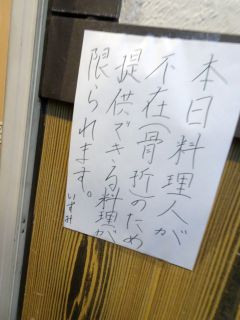 本日料理人が
不在(骨折)のため
提供できる料理が
限られます。
いずみ